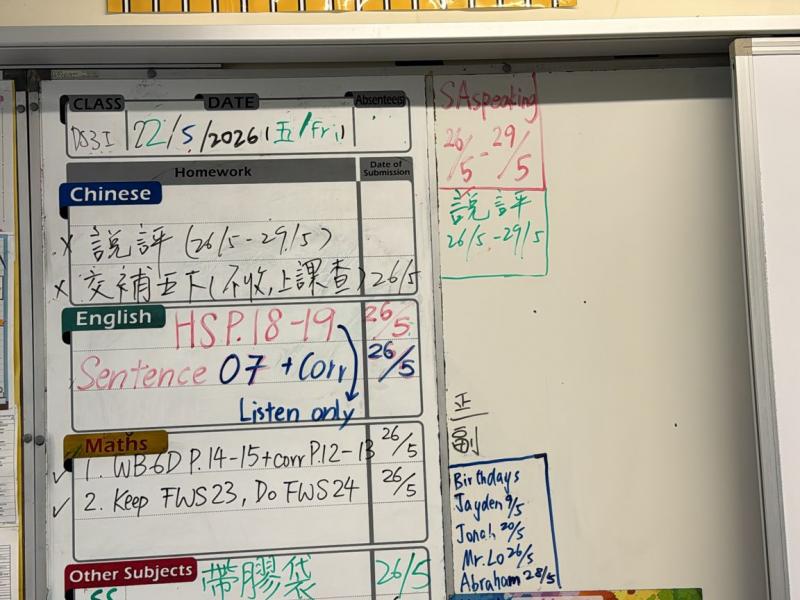 CLASS DATE Absentees
DS3I 22/5/2026(五/Fri)
Homework Date of Submission
Chinese
x 說評 (26/5-29/5)
x 交補五下(不收,上課查) 26/5
English HS P.18-19 26/5
Sentence 07 + Corr 26/5
Listen only
Maths
✓ 1. WB6D P.14-15+corr P.12-13 26/5
✓ 2. Keep FWS23, Do FWS24 26/5
Other Subjects 帶膠袋 26/5
SA speaking
26/5-29/5
說評
26/5-29/5
正
副
Birthdays
Jayden 9/5
Jonah 20/5
Mr.Lo 26/5
Abraham 28/5